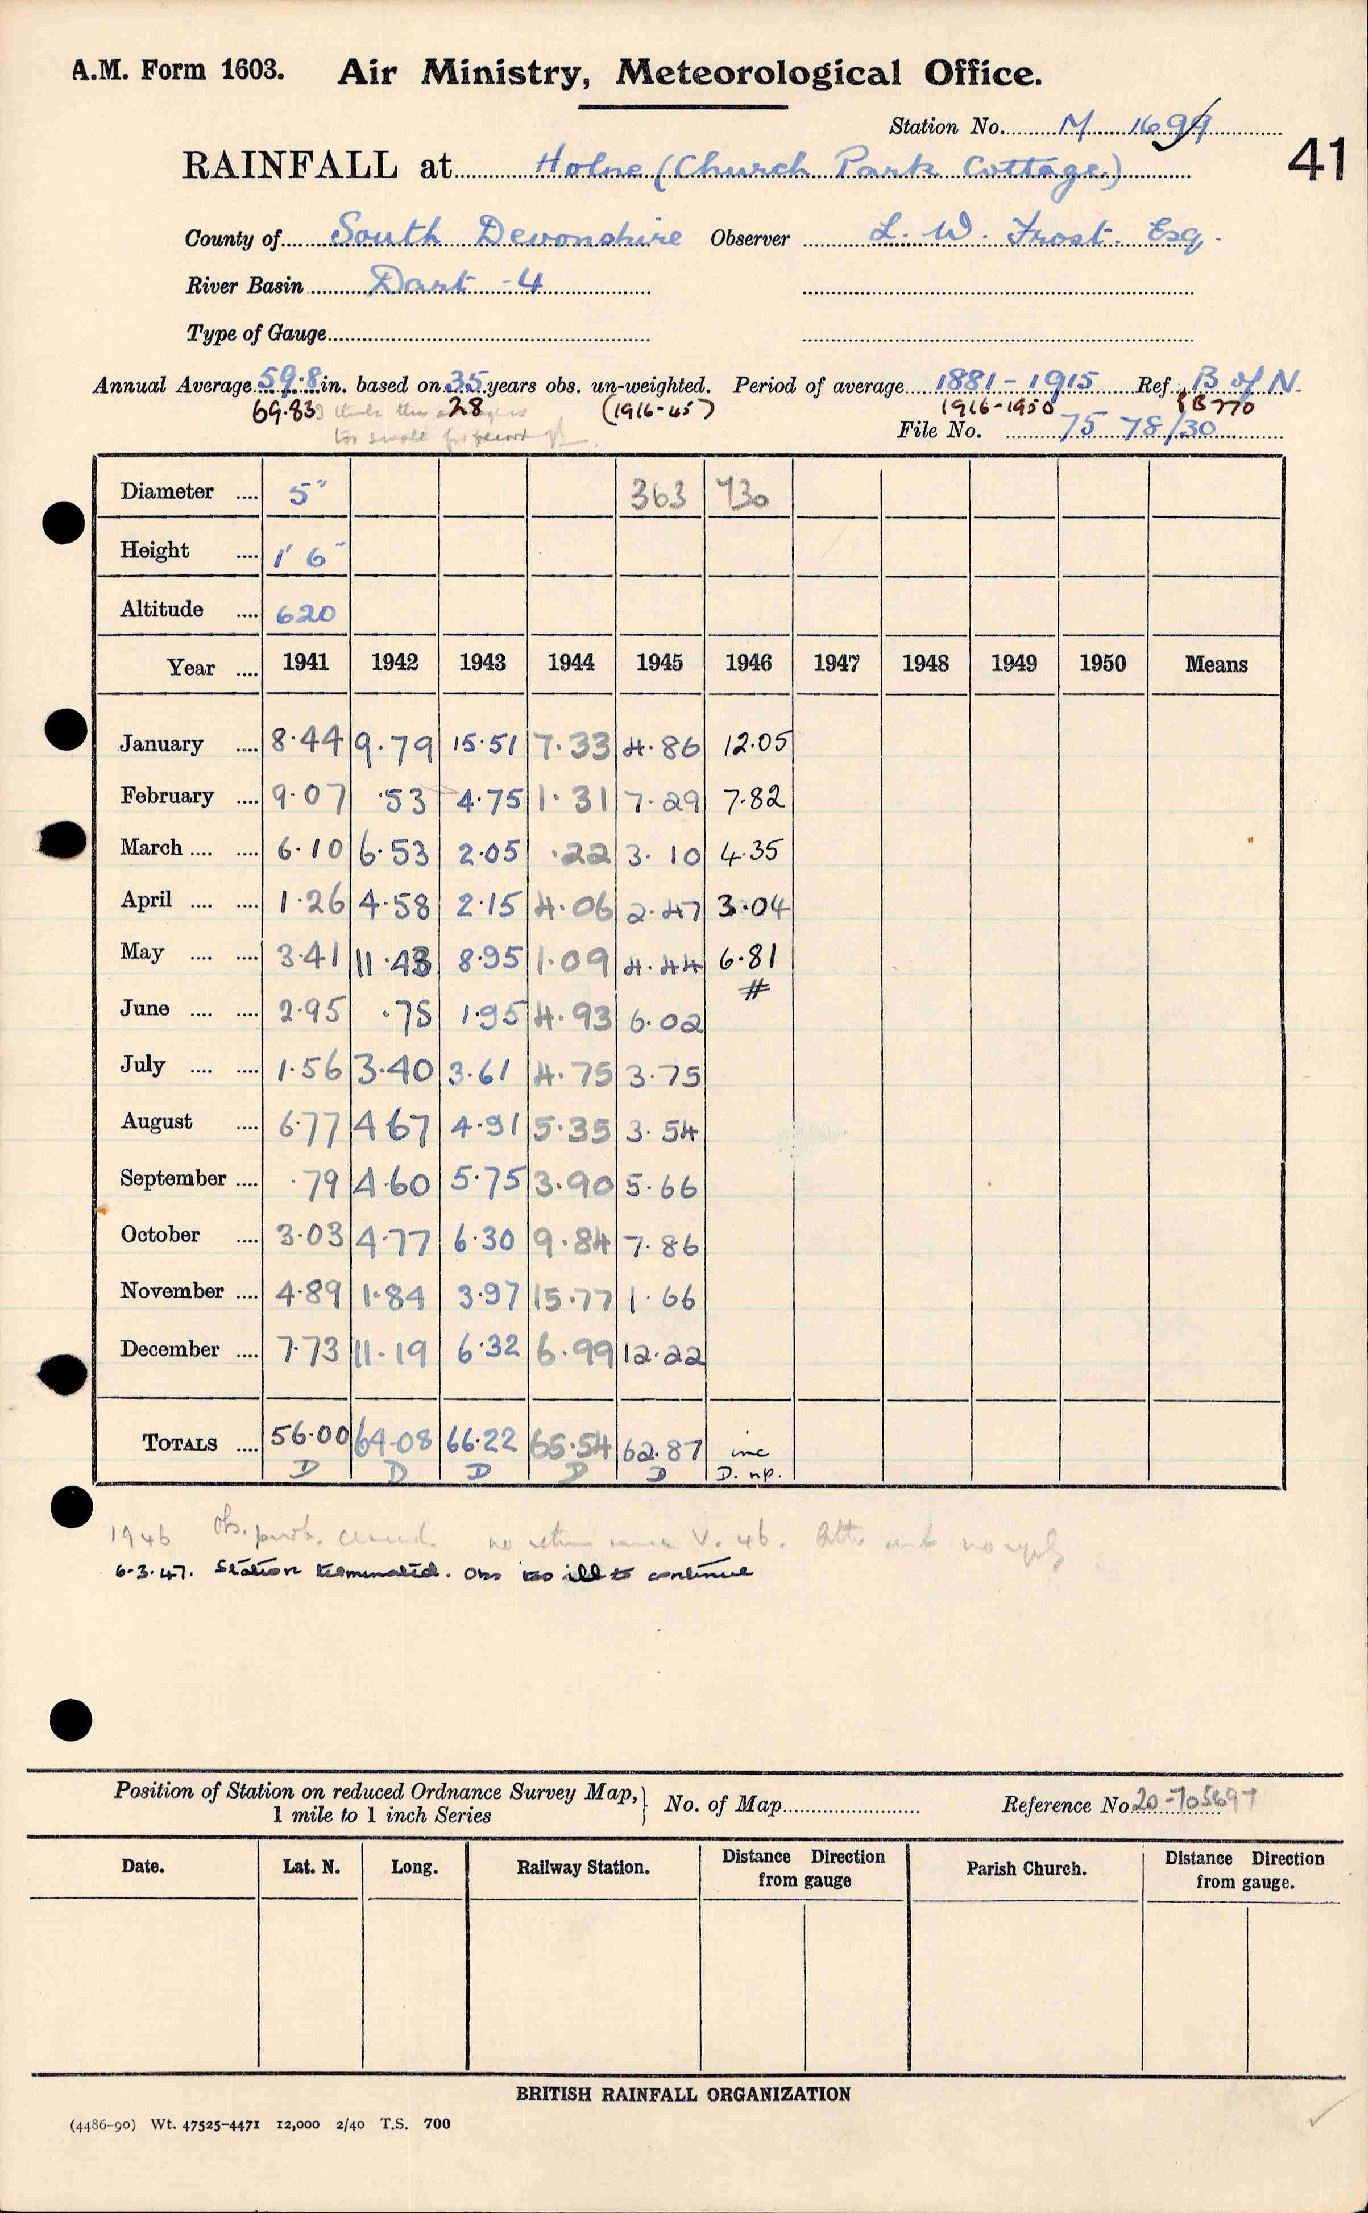 A.M. Form 1603. Air Ministry, Meteorological Office.
Station No. M 1699
41
RAINFALL at Holne (Church Park Cottage)
County of South Devonshire Observer L. W. Frost. Esq.
River Basin Dart - 4
Type of Gauge
Annual Average 59.8 in. based on 35 years obs. un-weighted. Period of average 1881 - 1915 Ref. B of N.
69.83 28 (1916-45) 1916-1950 B 770
I think this average is
too small
File No. 75 78/30
Diameter .... 5" 363 730
Height .... 1' 6"
Altitude .... 620
Year .... 1941 1942 1943 1944 1945 1946 1947 1948 1949 1950 Means
January .... 8.44 9.79 15.51 7.33 4.86 12.05
February .... 9.07 .53 4.75 1.31 7.29 7.82
March .... .... 6.10 6.53 2.05 .22 3.10 4.35
April .... .... 1.26 4.58 2.15 4.06 2.47 3.04
May .... .... 3.41 11.43 8.95 1.09 4.44 6.81
#
June .... .... 2.95 .75 1.95 4.93 6.02
July .... .... 1.56 3.40 3.61 4.75 3.75
August .... 6.77 4.67 4.91 5.35 3.54
September .... .79 4.60 5.75 3.90 5.66
October .... 3.03 4.77 6.30 9.84 7.86
November .... 4.89 1.84 3.97 15.77 1.66
December .... 7.73 11.19 6.32 6.99 12.22
TOTALS .... 56.00 64.08 66.22 65.54 62.87 inc
D D D D D D. np.
1946 Obs. prob. ceased. no return since V. 46. no reply
6-3-47. Station terminated. Obs too ill to continue
Position of Station on reduced Ordnance Survey Map, 1 mile to 1 inch Series } No. of Map Reference No. 20-705697
Date. Lat. N. Long. Railway Station. Distance from gauge Direction Parish Church. Distance from gauge. Direction
BRITISH RAINFALL ORGANIZATION
(4486-90) Wt. 47525-4471 12,000 2/40 T.S. 700